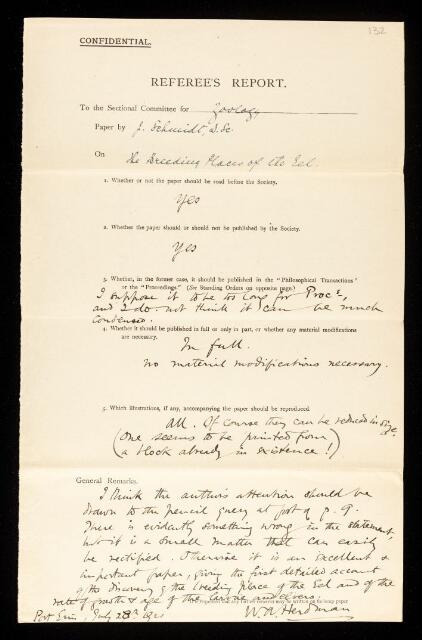 132
CONFIDENTIAL.
REFEREE'S REPORT.
To the Sectional Committee for Zoology
Paper by J. Schmidt, D.Sc.
On The Breeding Places of the Eel.
1. Whether or not the paper should be read before the Society.
Yes
2. Whether the paper should or should not be published by the Society.
Yes
3. Whether, in the former case, it should be published in the "Philosophical Transactions"
or the "Proceedings." (See Standing Orders on opposite page.)
I suppose it to be too long for Procs,
and I do not think it can be much
condensed.
4. Whether it should be published in full or only in part, or whether any material modifications
are necessary.
In full.
no material modifications necessary.
5. Which illustrations, if any, accompanying the paper should be reproduced
All. Of course they can be reduced in size.
(One seems to be printed from
a block already in existence!)
General Remarks.
I think the author's attention should be
drawn to the pencil query at foot of p. 9.
There is evidently something wrong in the statement,
but it is a small matter that can easily
be rectified. Otherwise it is an excellent &
important paper, giving the first detailed account
of the discovery of the breeding place of the Eel and of the
rate of growth & age of the larvae and elvers.
Port Erin, July 28th
W. A. Herdman